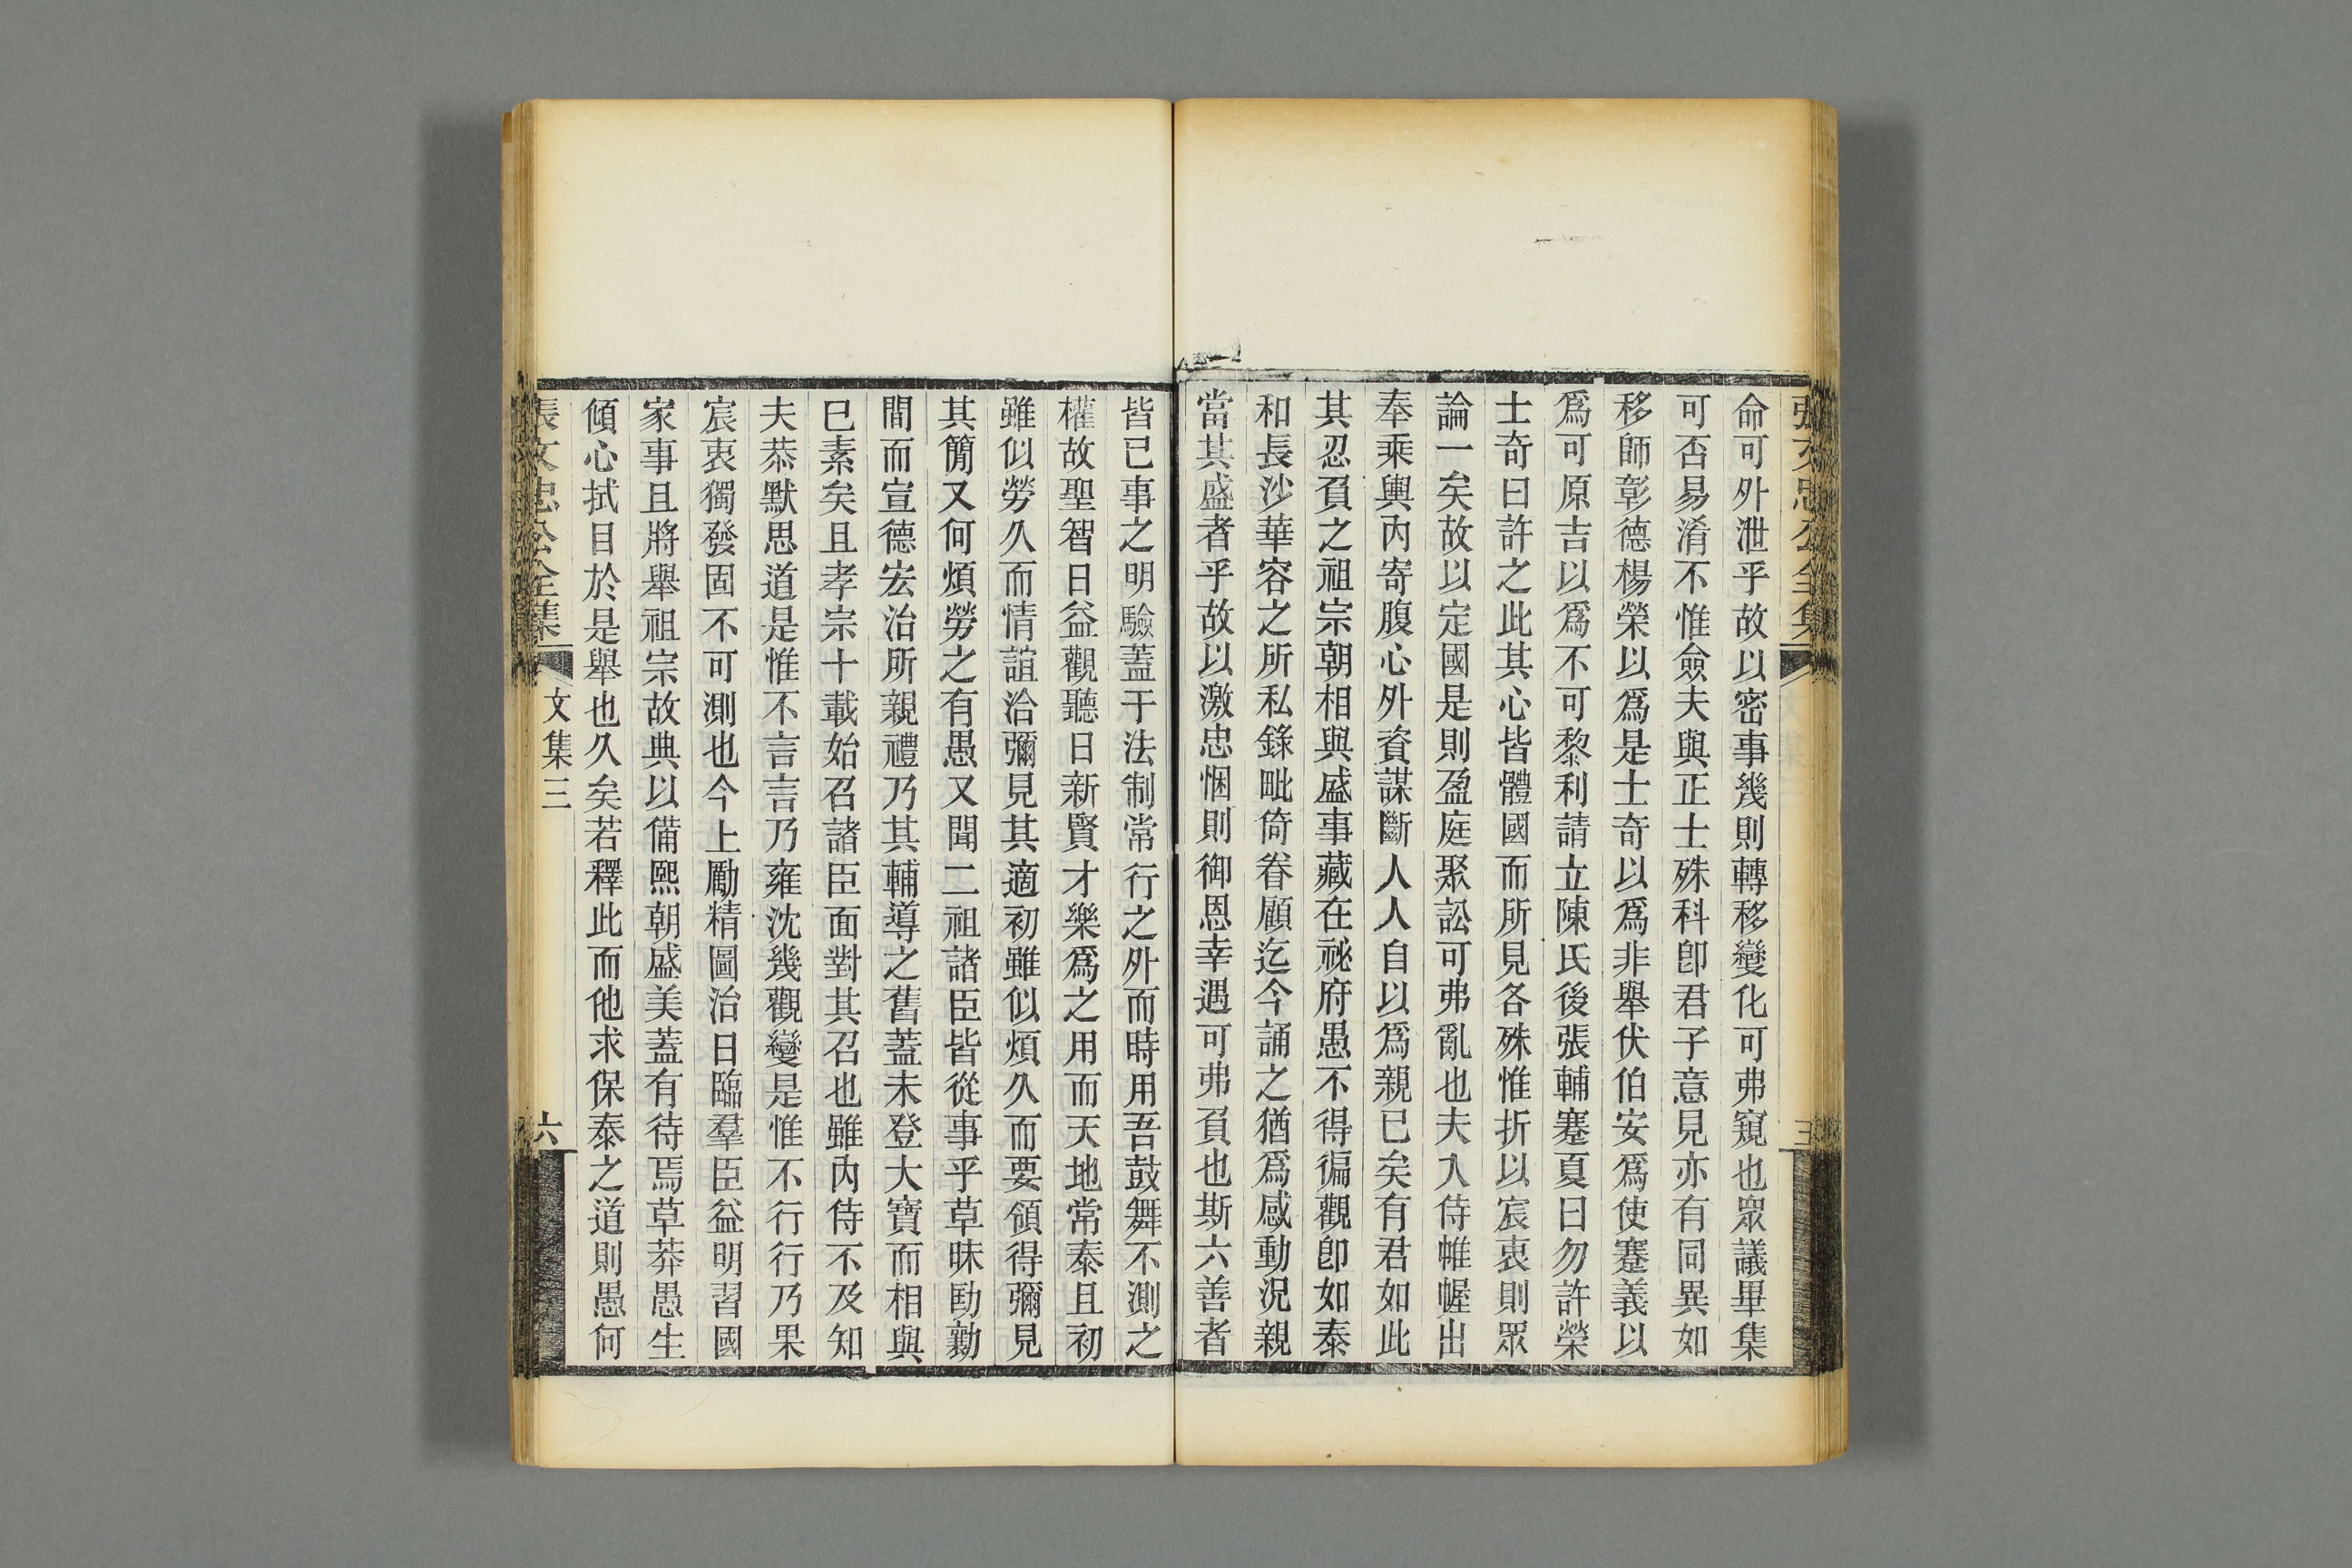 張文忠公全集
五
命可外泄乎故以密事幾則轉移變化可弗窺也眾議畢集
可否易淆不惟僉夫與正士殊科卽君子意見亦有同異如
移師彰德楊榮以爲是士奇以爲非舉伏伯安爲使蹇義以
爲可原吉以爲不可黎利請立陳氏後張輔蹇夏曰勿許榮
士奇曰許之此其心皆體國而所見各殊惟折以宸衷則眾
論一矣故以定國是則盈庭聚訟可弗亂也夫入侍帷幄出
奉乘輿內寄腹心外資謀斷人人自以爲親已矣有君如此
其忍負之祖宗朝相與盛事藏在祕府愚不得徧觀卽如泰
和長沙華容之所私錄毗倚眷顧迄今誦之猶爲感動況親
當其盛者乎故以激忠悃則御恩幸遇可弗負也斯六善者
皆已事之明驗蓋于法制常行之外而時用吾鼓舞不測之
權故聖智日益觀聽日新賢才樂爲之用而天地常泰且初
雖似勞久而情誼洽彌見其適初雖似煩久而要領得彌見
其簡又何煩勞之有愚又聞二祖諸臣皆從事乎草昧劻勷
間而宣德宏治所親禮乃其輔導之舊蓋未登大寶而相與
已素矣且孝宗十載始召諸臣面對其召也雖內侍不及知
夫恭默思道是惟不言言乃雍沈幾觀變是惟不行行乃果
宸衷獨發固不可測也今上勵精圖治日臨羣臣益明習國
家事且將舉祖宗故典以備熙朝盛美蓋有待焉草莽愚生
傾心拭目於是舉也久矣若釋此而他求保泰之道則愚何
張文忠公全集
文集三
六